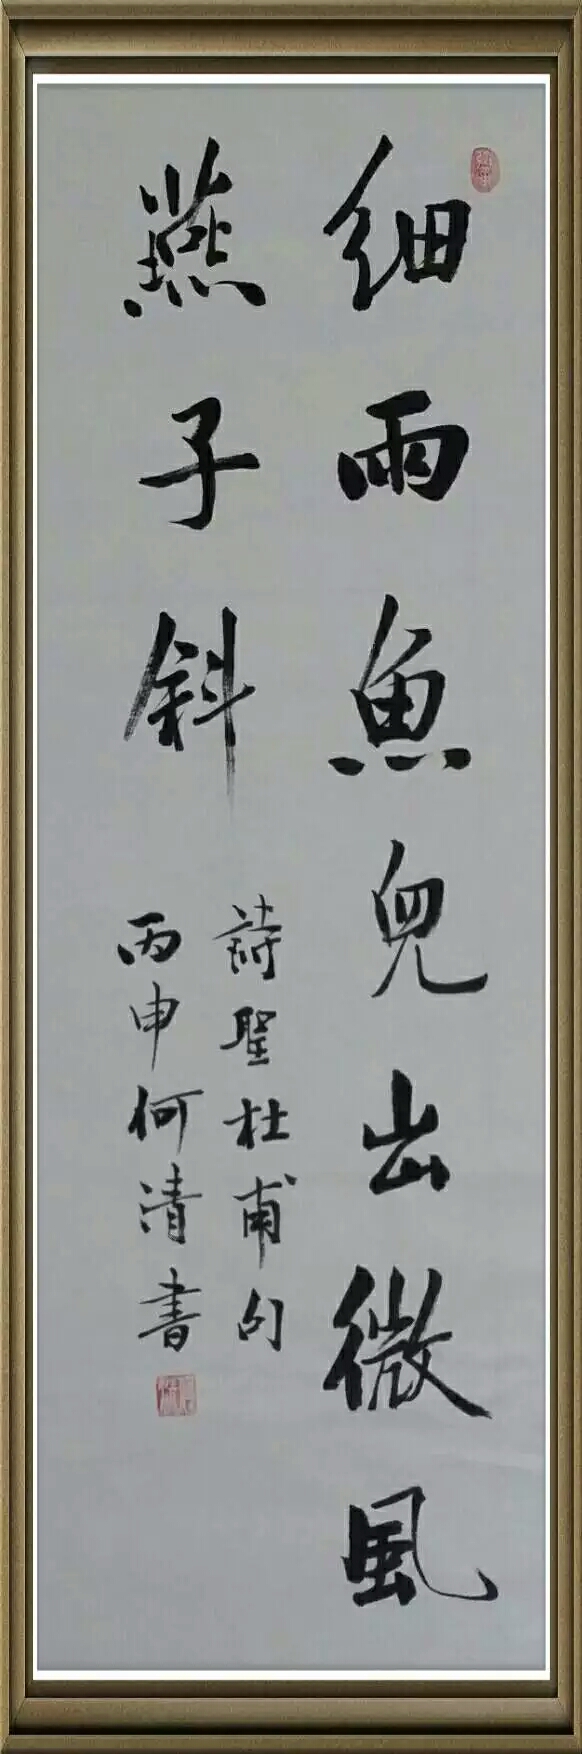 細雨魚兒出微風
燕子斜
詩聖杜甫句
丙申何清書